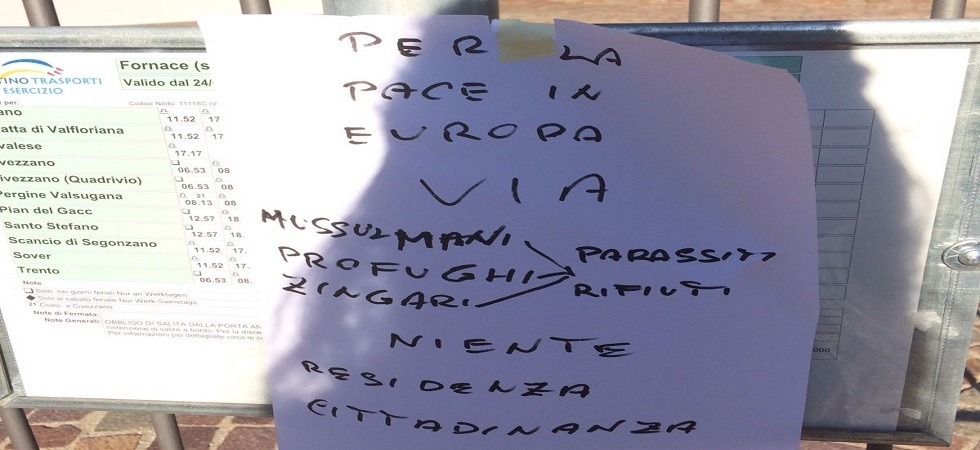 PER LA
PACE IN
EUROPA
VIA
MUSSULMANI
PROFUGHI
ZINGARI
PARASSITI
RIFIUTI
NIENTE
RESIDENZA
CITTADINANZA
TINO TRASPORTI
ESERCIZIO
Fornace (s
Valido dal 24/
Codice Nodo: 11115C (V
per:
ano 11.52 17
atta di Valfloriana 11.52 17
valese 17.17
vezzano 06.53 08
ivezzano (Quadrivio) 06.53 08
Pergine Valsugana 08.13 08
Pian del Gacc 12.57 18.
Santo Stefano 12.57 18.
Scancio di Segonzano 11.52 17.
Sover 11.52 17.
Trento 06.53 08.
Note
Solo nei giorni feriali Nur an Werktagen
Solo al sabato feriale Nur Werk-Samstags
21 Coinc. a Civezzano
Note di Fermata:
Note Generali: OBBLIGO DI SALITA DALLA PORTA AN
l'intenzione di salire a bordo. Per la disce
Per informazioni più dettagliate circa le c